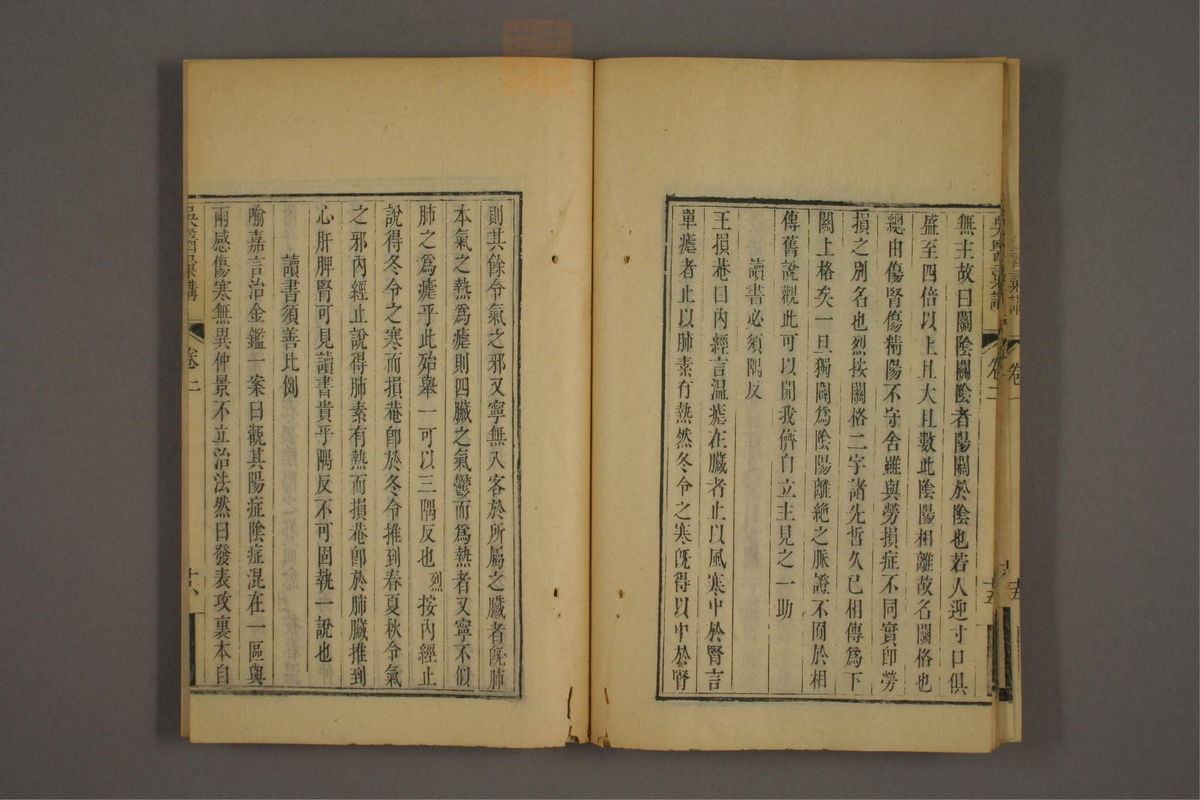 無主故曰關陰關陰者陽關於陰也若人迎寸口俱
盛至四倍以上且大且數此陰陽相離故名關格也
總由傷腎傷精陽不守舍雖與勞損症不同實即勞
損之別名也烈按關格二字諸先哲久已相傳為下
關上格矣一旦獨闢為陰陽離絶之脈證不囿於相
傳舊說觀此可以開我儕自立主見之一助
讀書必須隅反
王損菴曰內經言溫瘧在臟者止以風寒中於腎言
單瘧者止以肺素有熱然冬令之寒既得以中於腎
則其餘令氣之邪又寧無入客於所屬之臟者既肺
本氣之熱為瘧則四臟之氣鬱而為熱者又寧不似
肺之為瘧乎此殆舉一可以三隅反也烈按內經止
說得冬令之寒而損菴即於冬令推到春夏秋令氣
之邪內經止說得肺素有熱而損菴即於肺臟推到
心肝脾腎可見讀書貴乎隅反不可固執一說也
讀書須善比例
喻嘉言治金鑑一案曰觀其陽症陰症混在一區與
兩感傷寒無異仲景不立治法然曰發表攻裏本自
吳醫彙講
卷二
十六
卷二
十五